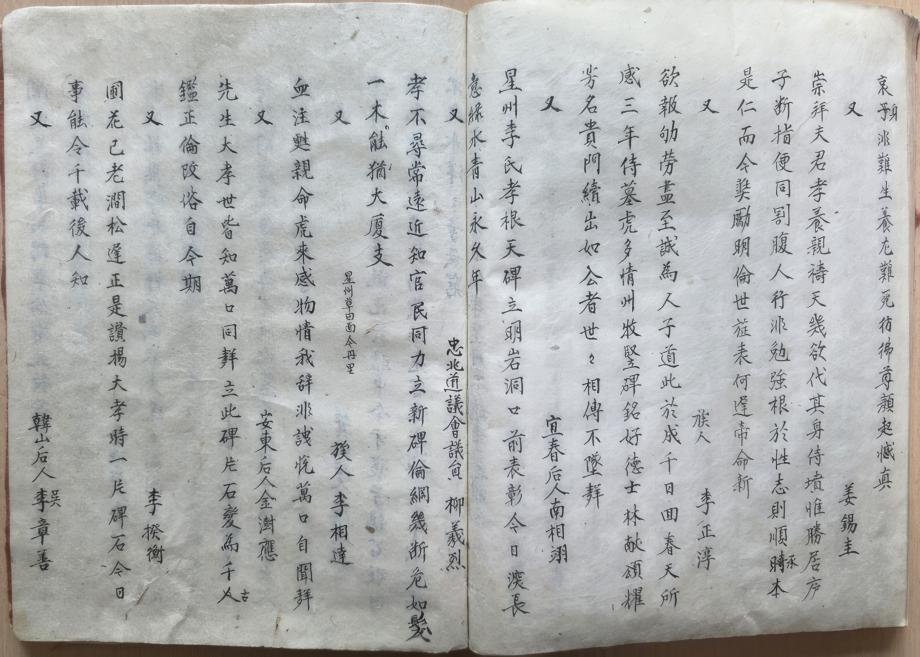 哀子身非難生養尤難兎彷彿尊顔起慽眞
又
姜錫圭
崇拜夫君孝養親禱天幾欲代其身侍墳惟勝居序
子斷指便同割腹人行非勉強根於性志則順時承本
是仁而今奬勵明倫世旌表何遲帝命新
又
族人
李正淳
欲報劬勞盡至誠為人子道此於成千日回春天所
感三年侍墓虎多情州牧竪碑銘好德士林獻頌耀
芳名貴門續出如公者世々相傳不墜聲
又
宜春后人南相翊
星州李氏孝根天碑立明岩洞口前表彰今日漢長
意綠水青山永久年
又
忠北道議會議員
柳羲烈
孝不尋常遠近知官民同力立新碑倫綱幾斷危如髮
一木能猶大廈支
星州草田面令丹里
又
族人李相達
血注甦親命虎來感物情我辞非誂悦萬口自聞聲
又
安東后人金澍應
先生大孝世皆知萬口同聲立此碑片石愛為千人古
鑑正倫改俗自今期
又
李揆衡
圃花已老澗松遲正是讚揚大孝時一片碑石今日
事能令千載後人知
又
韓山后人李章善
吳